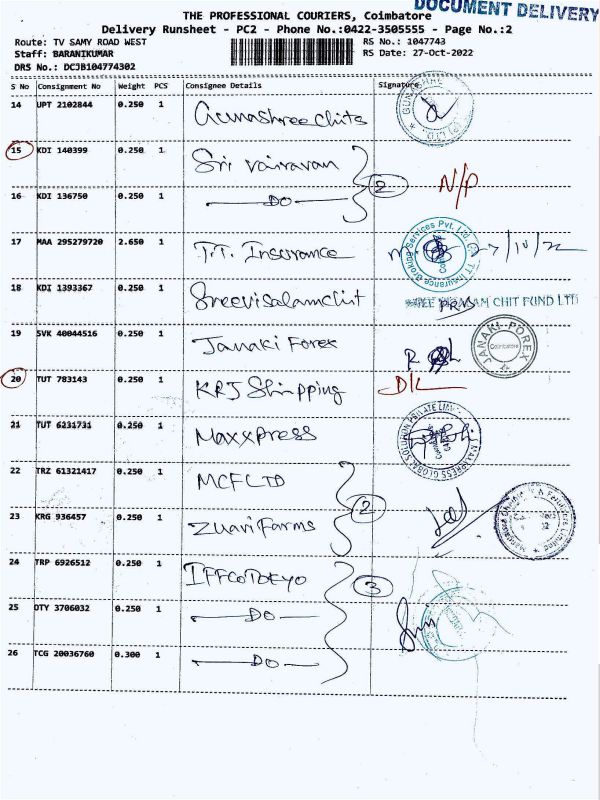 DOCUMENT DELIVERY
THE PROFESSIONAL COURIERS, Coimbatore
Delivery Runsheet - PC2 - Phone No.:0422-3505555 - Page No.:2
Route: TV SAMY ROAD WEST RS No.: 1047743
Staff: BARANIKUMAR RS Date: 27-Oct-2022
DRS No.: DCJB104774302
S No Consignment No Weight PCS Consignee Details Signature
14 UPT 2102844 0.250 1 Gunashree chits
15 KDI 140399 0.250 1 Sri Vairavan
2 N/P
16 KDI 136750 0.250 1 DO
17 MAA 295279720 2.650 1 T.T. Insurance 27/10/22
18 KDI 1393367 0.250 1 Sreevisalamchit CHIT FUND LTD
19 SVK 40044516 0.250 1 Janaki Forex JANAKI FOREX Coimbatore
20 TUT 783143 0.250 1 KRJ Shipping D/L
21 TUT 6231731 0.250 1 Maxxpress
22 TRZ 61321417 0.250 1 MCFLTD
2
23 KRG 936457 0.250 1 Zuari Farms
24 TRP 6926512 0.250 1 IFFCOTOKYO
3
25 OTY 3706032 0.250 1 DO
26 TCG 20036760 0.300 1 DO